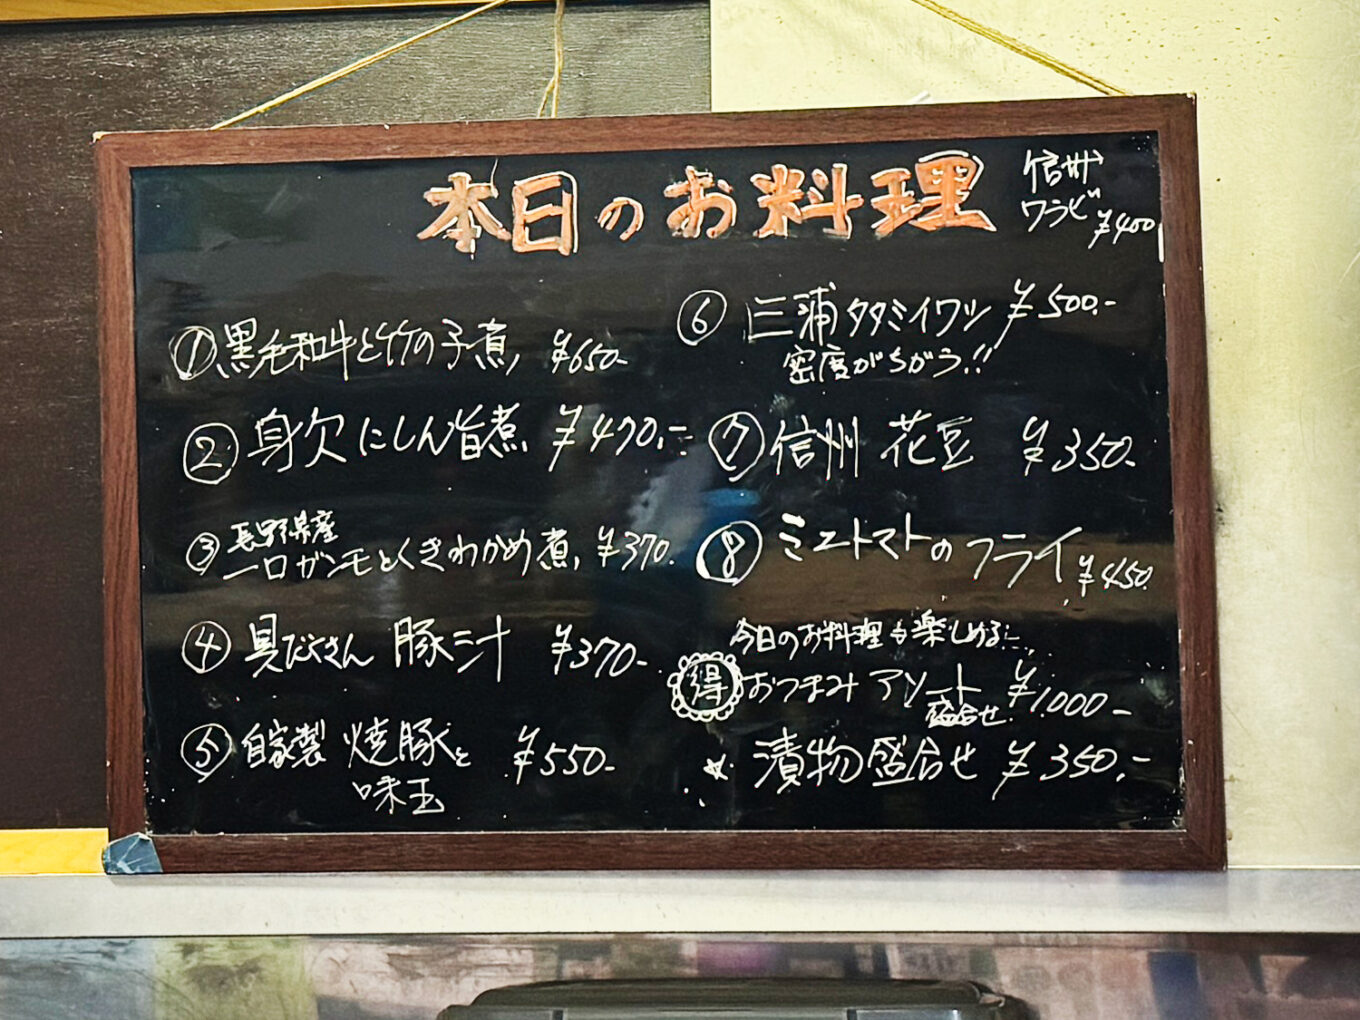 本日のお料理
信州
ワラビ ¥400
① 黒毛和牛と竹の子煮 ¥650-
② 身欠にしん旨煮 ¥470.-
③ 長野県産
一口ガンモとくきわかめ煮 ¥370.
④ 具だくさん 豚汁 ¥370-
⑤ 自家製 焼豚と
味玉 ¥550-
⑥ 三浦タタミイワシ ¥500.-
密度がちがう!!
⑦ 信州 花豆 ¥350-
⑧ ミニトマトのフライ ¥450.
今日のお料理も楽しめる
得 おつまみ アソート ¥1.000-
盛合せ
漬物盛合せ ¥350.-